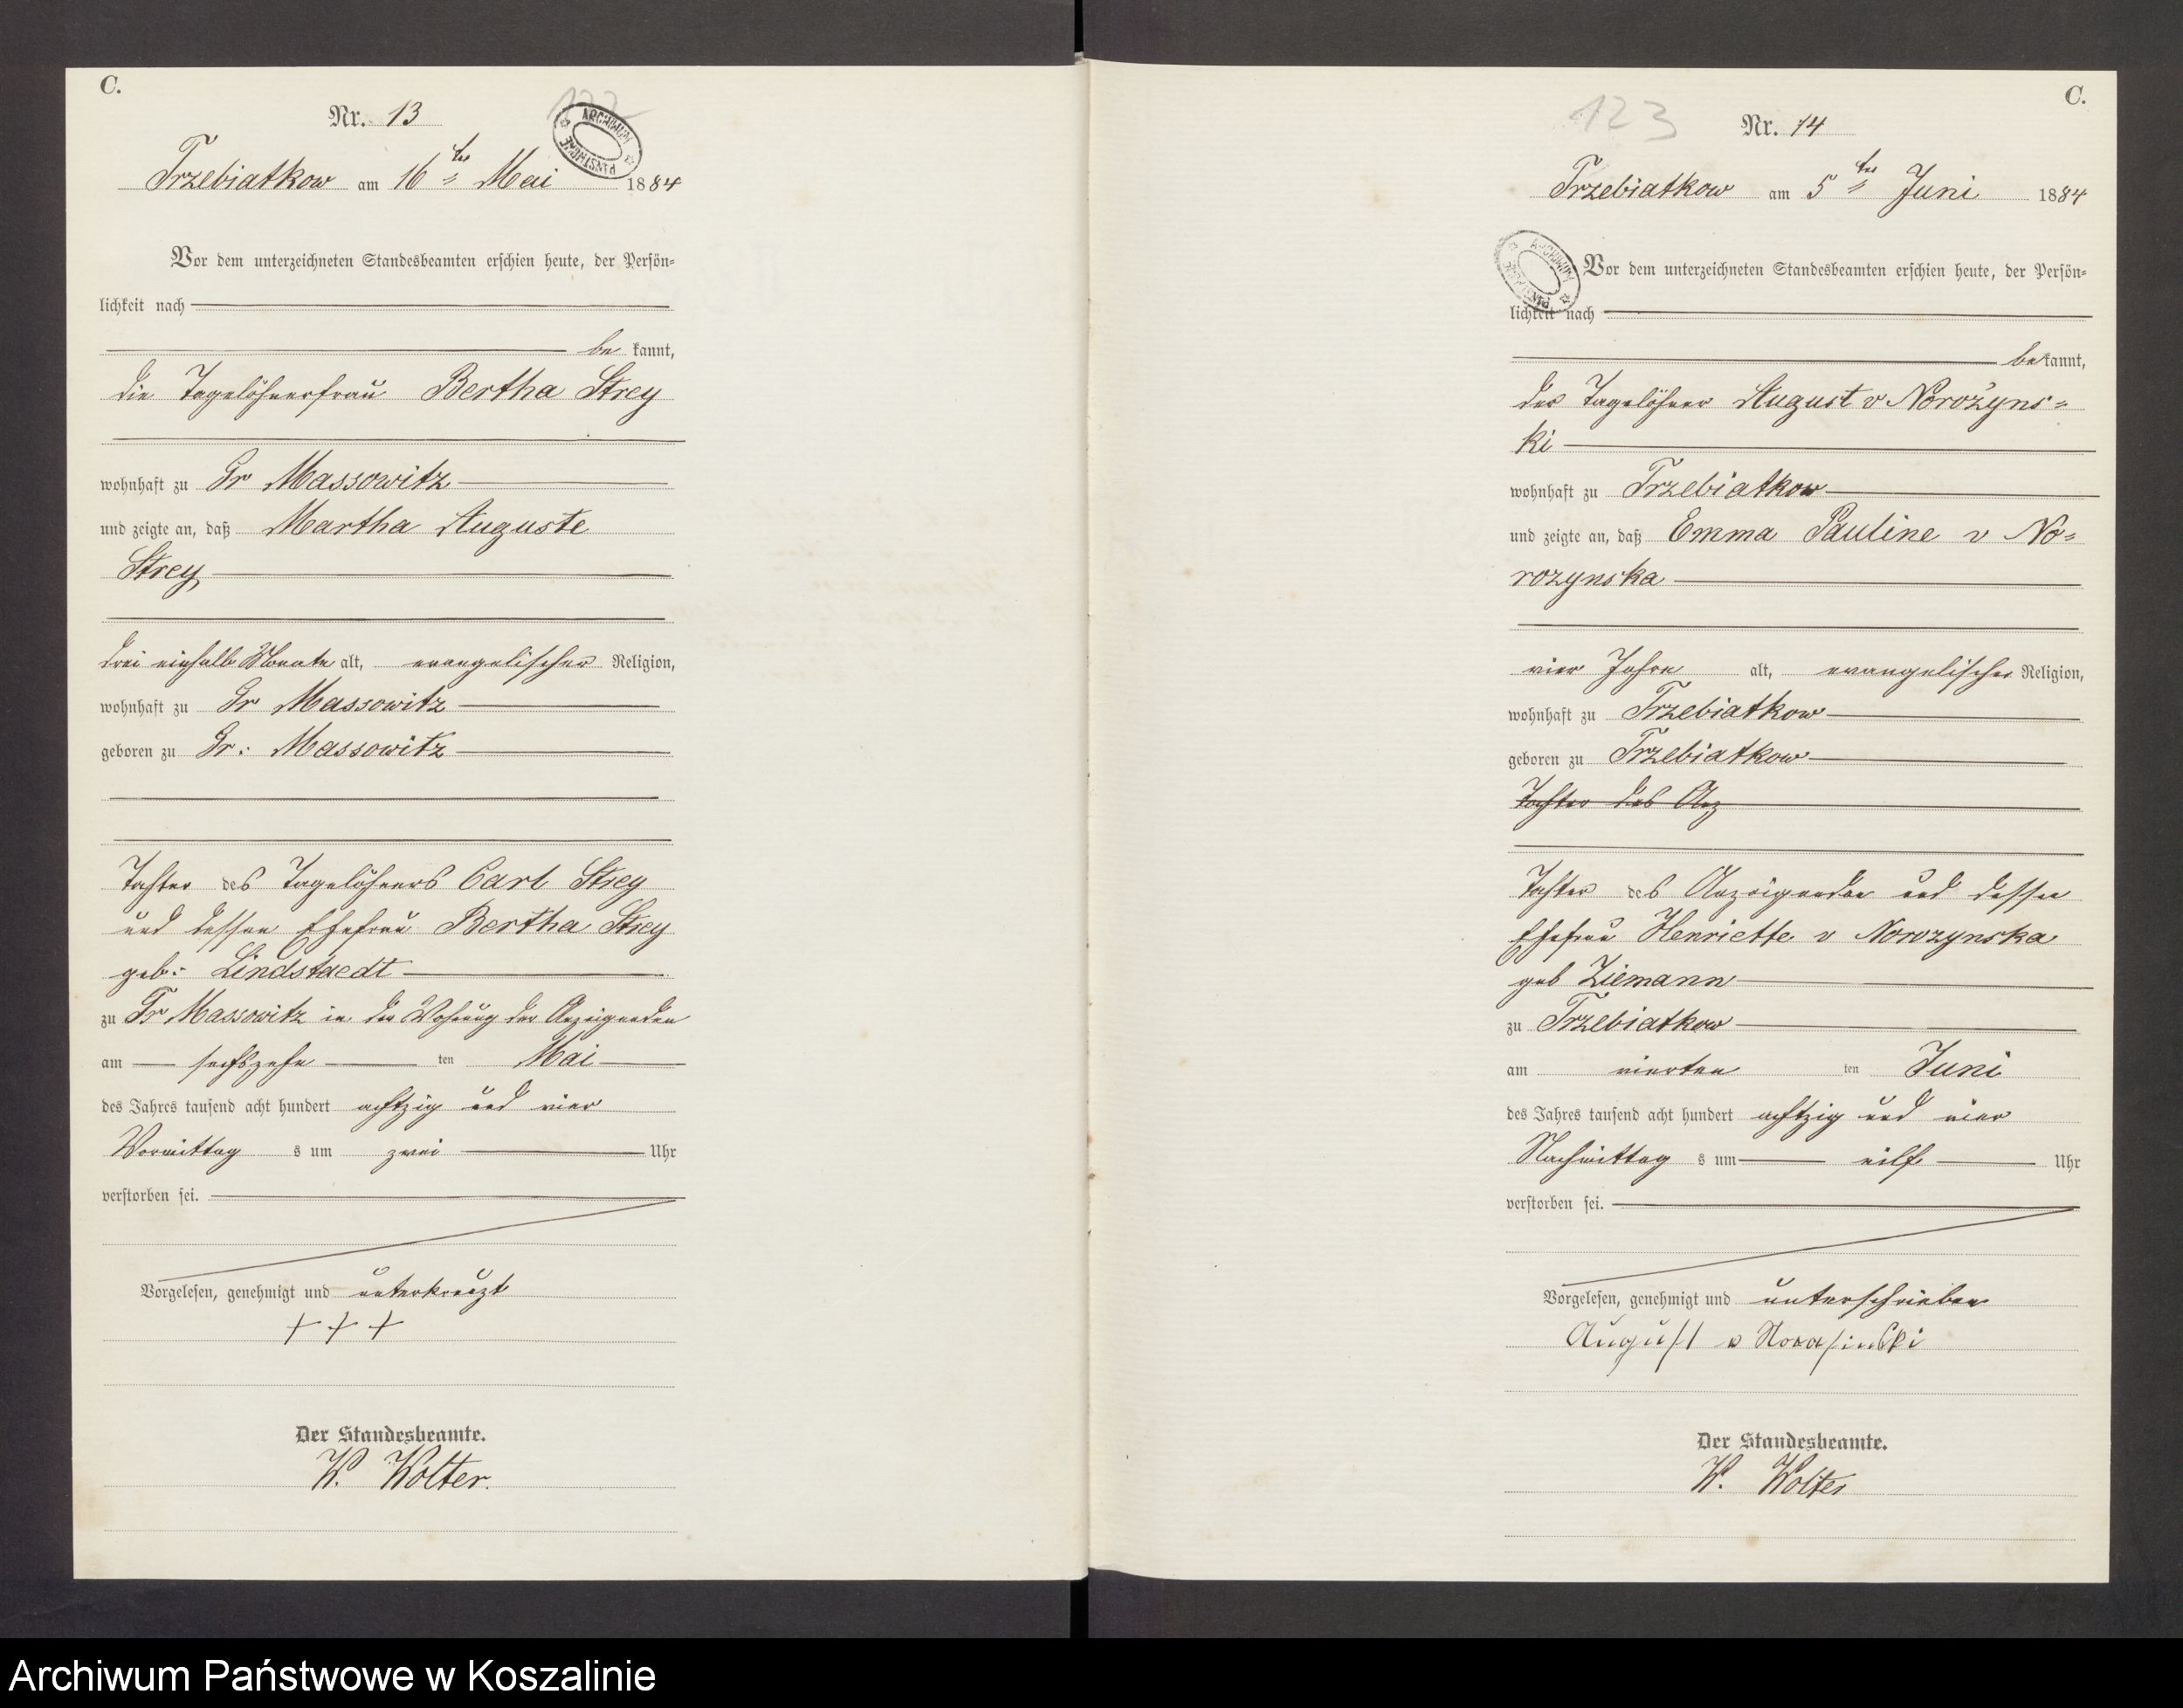 C.
122
Nr. 13
ARCHIWUM PAŃSTWOWE
Trzebiatkow am 16ten Mai 1884
Vor dem unterzeichneten Standesbeamten erschien heute, der Persön-
lichkeit nach
be kannt,
die Tagelöhnerfrau Bertha Strey
wohnhaft zu Gr Massowitz
und zeigte an, daß Martha Auguste
Strey
drei einhalb Monate alt, evangelischer Religion,
wohnhaft zu Gr Massowitz
geboren zu Gr: Massowitz
Tochter des Tagelöhners Carl Strey
und dessen Ehefrau Bertha Strey
geb: Lindstaedt
zu Gr Massowitz in der Wohnung der Anzeigenden
am sechszehn ten Mai
des Jahres tausend acht hundert achtzig und vier
Vormittag s um zwei Uhr
verstorben sei.
Vorgelesen, genehmigt und unterkreuzt
+ + +
Der Standesbeamte.
W. Wolter.
C.
123
Nr. 14
Trzebiatkow am 5ten Juni 1884
ARCHIWUM PAŃSTWOWE
Vor dem unterzeichneten Standesbeamten erschien heute, der Persön-
lichkeit nach
be kannt,
der Tagelöhner August v Norożyns-
ki
wohnhaft zu Trzebiatkow
und zeigte an, daß Emma Pauline v No-
rozynska
vier Jahre alt, evangelischer Religion,
wohnhaft zu Trzebiatkow
geboren zu Trzebiatkow
Tochter des Anz
Tochter des Anzeigenden und dessen
Ehefrau Henriette v Norozynska
geb Ziemann
zu Trzebiatkow
am vierten ten Juni
des Jahres tausend acht hundert achtzig und vier
Nachmittag s um eilf Uhr
verstorben sei.
Vorgelesen, genehmigt und unterschrieben
August v Norosinski
Der Standesbeamte.
W. Wolter
Archiwum Państwowe w Koszalinie